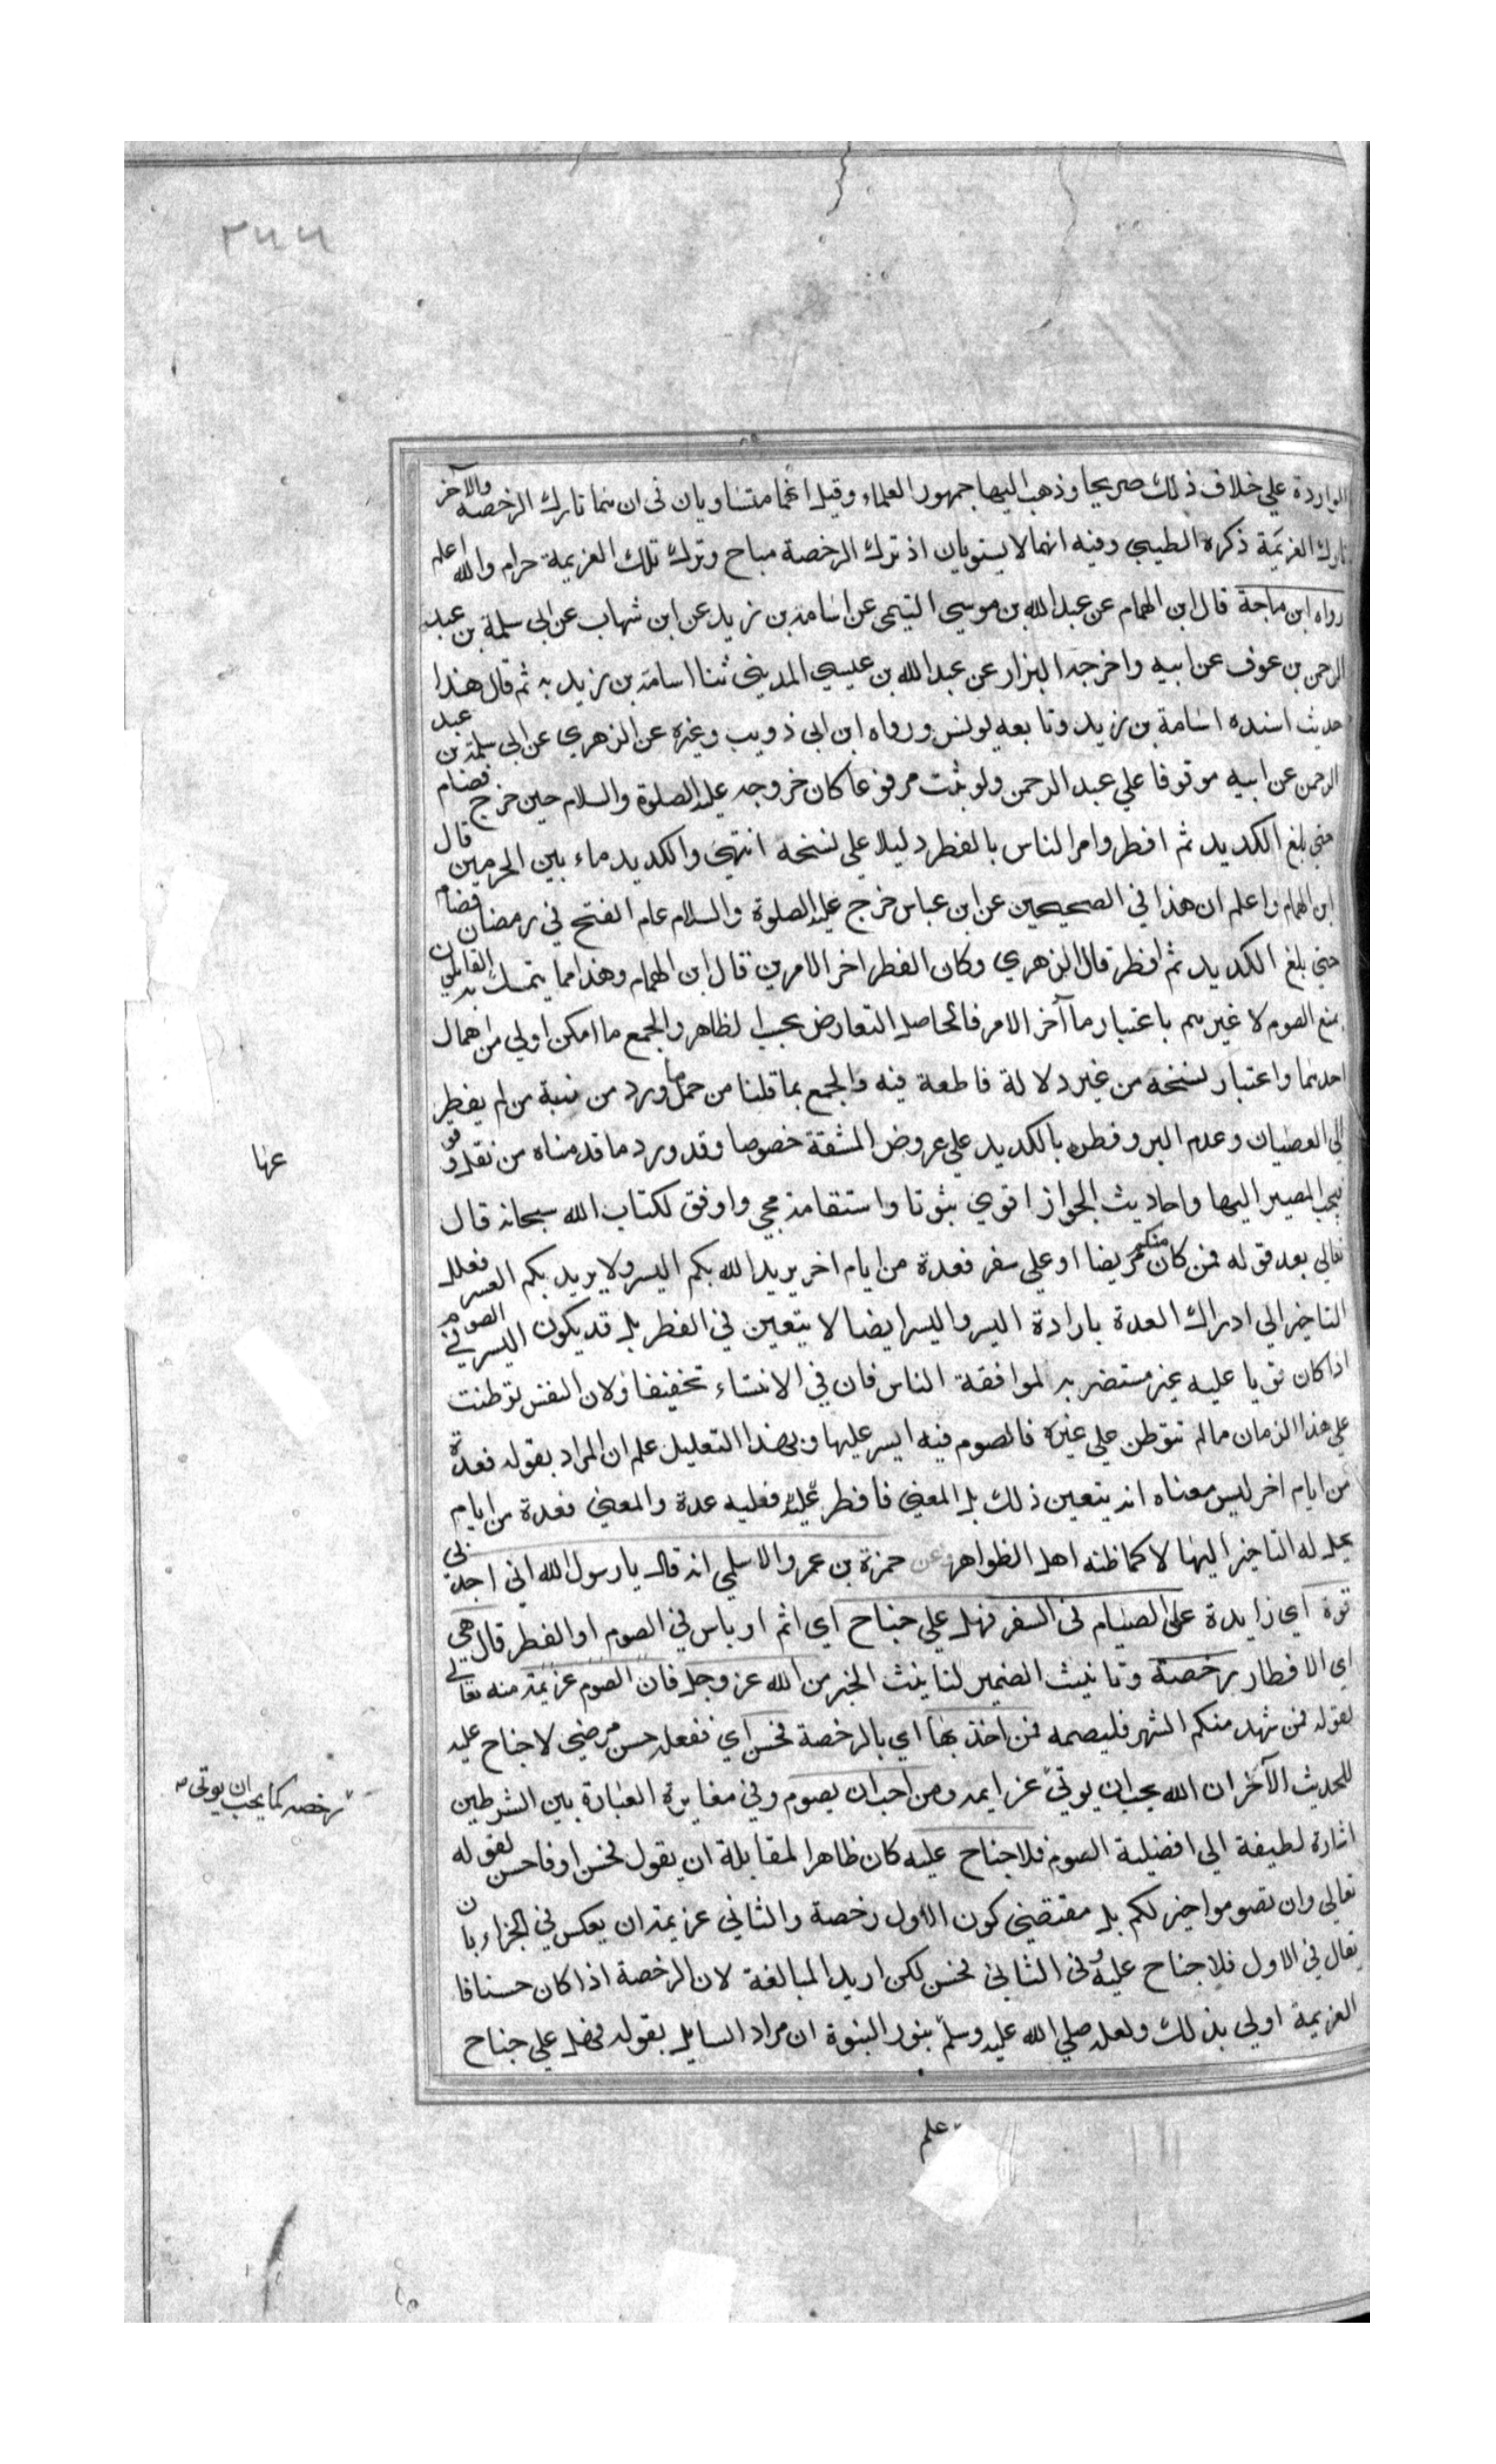 ٢٦٦
الواردة علي خلاف ذلك صريحا وذهب اليها جمهور العلماء وقيل انهما متساويان في ان منهما تارك الرخصة والآخر
تارك العزيمة ذكره الطيبي وفيه انهما لا يستويان اذ ترك الرخصة مباح وترك تلك العزيمة حرام والله اعلم
رواه ابن ماجة قال ابن الهمام عن عبد الله بن موسي التيمي عن اسامة بن زيد عن ابن شهاب عن ابي سلمة بن عبد
الرحمن بن عوف عن ابيه واخرجه البزار عن عبد الله بن عيسي المديني ثنا اسامة بن زيد به ثم قال هذا
حديث اسنده اسامة بن زيد وتابعه يونس ورواه ابن ابي ذويب وغيره عن الزهري عن ابي سلمة بن عبد
الرحمن عن ابيه موقوفا علي عبد الرحمن ولو ثبت مرفوعا كان خروجه عليه الصلوة والسلام حين خرج فصام
حتي بلغ الكديد ثم افطر وامر الناس بالفطر دليلا علي نسخه انتهي والكديد ماء بين الحرمين قال
ابن الهمام واعلم ان هذا في الصحيحين عن ابن عباس خرج عليه الصلوة والسلام عام الفتح في رمضان فصام
حتي بلغ الكديد ثم افطر قال الزهري وكان الفطر اخر الامرين قال ابن الهمام وهذا مما يتمسك به القائلون
بمنع الصوم لا غيرهم باعتبار ما آخر الامر فالحاصل التعارض بحسب الظاهر والجمع ما امكن اولي من اهمال
احدهما واعتبار نسخه من غير دلالة قاطعة فيه والجمع بما قلنا من حمل ما ورد من نسبة من لم يفطر
الي العصيان وعدم البر وفطره بالكديد علي عروض المشقة خصوصا وقد ورد ما قدمناه من نقل وقو
عها
فيجب المصير اليها واحاديث الجواز اقوي ثبوتا واستقامة مجي واوفق لكتاب الله سبحانه قال
تعالي بعد قوله فمن كان منكم مريضا او علي سفر فعدة من ايام اخر يريد الله بكم اليسر ولا يريد بكم العسر فعلل
التاخير الي ادراك العدة بارادة اليسر واليسر ايضا لا يتعين في الفطر بل قد يكون اليسر في الصوم
اذا كان قويا عليه غير مستضر به لموافقة الناس فان في الائتساء تخفيفا ولان النفس توطنت
علي هذا الزمان ما لم تتوطن علي غيره فالصوم فيه ايسر عليها وبهذا التعليل علم ان المراد بقوله فعدة
من ايام اخر ليس معناه انه يتعين ذلك بل المعني فافطر عليه فعليه عدة والمعني فعدة من ايام
يحل له التاخير اليها لا كما ظنه اهل الظواهر وعن حمزة بن عمرو الاسلمي انه قال يا رسول الله اني اجد بي
قوة اي زايدة علي الصيام في السفر فهل علي جناح اي اثم او باس في الصوم او الفطر قال هي
اي الافطار رخصة وتانيث الضمير لتانيث الخبر من الله عز وجل فان الصوم عزيمة منه تعالي
لقوله فمن شهد منكم الشهر فليصمه فمن اخذ بها اي بالرخصة فحسن اي ففعله حسن مرضي لا جناح عليه
للحديث الآخر ان الله يحب ان يوتي عزايمه ومن احب ان يصوم وفي مغايرة العبارة بين الشرطين
رخصه كما يحب ان يوتي
اشارة لطيفة الي افضلية الصوم فلا جناح عليه كان ظاهر المقابلة ان يقول فحسن او فاحسن لقوله
تعالي وان تصوموا خير لكم بل مقتضي كون الاول رخصة والثاني عزيمة ان يعكس في الجزاء بان
يقال في الاول فلا جناح عليه وفي الثاني فحسن لكن اريد المبالغة لان الرخصة اذا كان حسنا فا
لعزيمة اولي بذلك ولعله صلي الله عليه وسلم بنور النبوة ان مراد السايل بقوله فهل علي جناح
علم